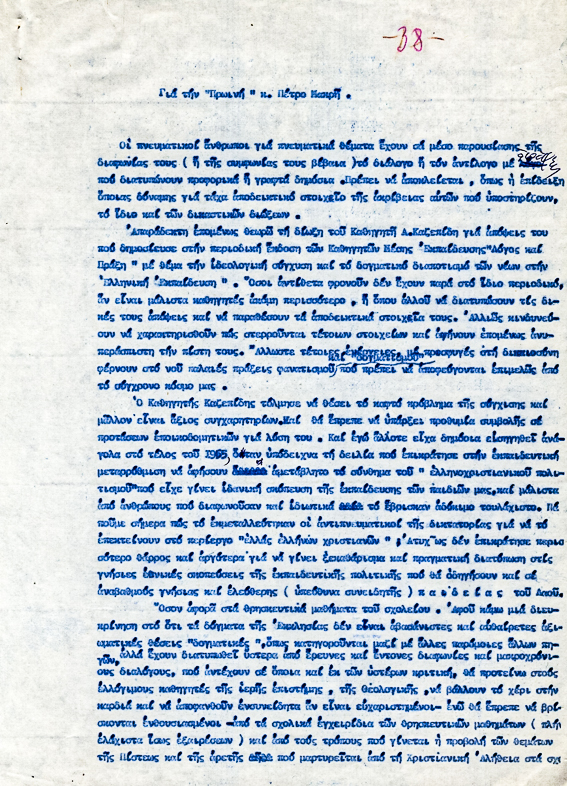 -38-
Γιά τήν "Πρωινή" κ. Πέτρο Μακρή .
Οἱ πνευματικοί ἄνθρωποι γιά πνευματικά θέματα ἔχουν σά μέσο παρουσίασης τῆς
διαφωνίας τους ( ἤ τῆς συμφωνίας τους βέβαια )τό διάλογο ἤ τόν ἀντίλογο μέ
πού διατυπώνουν προφορικά ἤ γραφτά δημόσια .Πρέπει νά ἀποκλείεται , ὅπως ἡ ἐπίδειξη
ὅποιας δύναμης γιά τάχα ἀποδεικτικό στοιχεῖο τῆς ἀκρίβειας αὐτῶν πού ὑποστηρίζουν,
τό ἴδιο καί τῶν δικαστικῶν διώξεων .
Ἀπαράδεκτη ἑπομένως θεωρῶ τή δίωξη τοῦ Καθηγητῆ Α.Καζεπίδη γιά ἀπόψεις του
πού δημοσίευσε στήν περιοδική ἔκδοση τῶν Καθηγητῶν Μέσης Ἐκπαίδευσης"Λόγος καί
Πράξη " μέ θέμα τήν ἰδεολογική σύγχυση καί τό δογματικό διαποτισμό τῶν νέων στήν
Ἑλληνική Ἐκπαίδευση" . Ὅσοι ἀντίθετα φρονοῦν δέν ἔχουν παρά στό ἴδιο περιοδικό,
ἄν εἶναι μάλιστα καθηγητές ἀκόμη περισσότερο , ἤ ὅπου ἀλλοῦ νά διατυπώσουν τίς δι-
κές τους ἀπόψεις καί νά παραθέσουν τά ἀποδεικτικά στοιχεῖα τους. Ἀλλιῶς κινδυνεύ-
ουν νά χαρακτηρισθοῦν πώς στερροῦνται τέτοιων στοιχείων καί ἀφήνουν ἑπομένως ἀνυ-
περάσπιστη τήν πίστη τους. Ἄλλωστε τέτοιες ἐνέργειες μέ προσφυγές στή δικαιοσύνη
καί δογματισμοῦ
φέρνουν στό νοῦ παλαιές πράξεις φανατισμοῦ πού πρέπει νά ἀποφεύγονται ἐπιμελῶς ἀπό
τό σύγχρονο κόσμο μας .
Ὁ Καθηγητής Καζεπίδης τόλμησε νά θέσει τό καφτό πρόβλημα τῆς σύγχισης καί
μᾶλλον εἶναι ἄξιος συγχαρητηρίων.Καί θά ἔπρεπε νά ὑπάρξει προθυμία συμβολῆς σέ
προτάσεων ἐποικοδομητικῶν γιά λύση του . Καί ἐγώ ἄλλοτε εἶχα δημόσια εἰσηγηθεῖ ἀνά-
γολα στό τέλος τοῦ 1965, ὅταν ὑπόδειχνα τή δειλία πού ἐπικράτησε στήν ἐκπαιδευτική
μεταρρύθμιση νά ἀφήσουν ἀμετάβλητο τό σύνθημα τοῦ " ἑλληνοχριστιανικοῦ πολι-
τισμοῦ"πού εἶχε γίνει ἰδανική σκόπευση τῆς ἐκπαίδευσης τῶν παιδιῶν μας,καί μάλιστα
ἀπό ἀνθρώπους πού διαφωνοῦσαν καί ἰδιωτικά τό ἔβρισκαν ἀδόκιμο τουλάχιστο. Νά
ποῦμε σήμερα πώς τό ἐκμεταλλεύτηκαν οἱ ἀντιπνευματικοί τῆς δικτατορίας γιά νά τό
ἐπεκτείνουν στό περίεργο "ἑλλάς ἑλλήνων χριστιανῶν" ; Ἀτυχῶς δέν ἐπικράτησε περισ
σότερο θάρρος καί ἀργότερα γιά νά γίνει ξεκαθάρισμα καί πραγματική διατύπωση στίς
γνήσιες ἐθνικές σκοπεύσεις τῆς ἐκπαιδευτικῆς πολιτικῆς πού θά ὁδηγήσουν καί σέ
ἀναβαθμούς γνήσιας καί ἐλεύθερης ( ὑπεύθυνα συνειδητῆς ) π α ι δ ε ί α ς τοῦ Λαοῦ.
Ὅσον ἀφορᾶ στά θρησκευτικά μαθήματα τοῦ σχολείου . Ἀφοῦ κάμω μιά διευ-
κρίνηση στό ὅτι τά δόγματα τῆς Ἐκκλησίας δέν εἶναι ἀβασάνιστες καί αὐθαίρετες ἀξι-
ωματικές θέσεις "δογματικές",ὅπως κατηγοροῦνται μαζί μέ ἄλλες παρόμοιες ἄλλων πη-
γῶν, ἀλλά ἔχουν διατυπωθεῖ ὕστερα ἀπό ἔρευνες καί ἔντονες διαφωνίες καί μακροχρόνι-
ους διαλόγους, πού ἀντέχουν σέ ὅποια καί ἐκ τῶν ὑστέρων κριτική, θά προτείνω στούς
ἐλλόγιμους καθηγητές τῆς ἱερῆς ἐπιστήμης , τῆς θεολογικῆς ,νά βάλλουν τό χέρι στήν
καρδιά καί νά ἀποφανθοῦν ἐνσυνείδητα ἄν εἶναι εὐχαριστημένοι- ἐνῶ θά ἔπρεπε νά βρί-
σκονται ἐνθουσιασμένοι -ἀπό τά σχολικά ἐγχειρίδια τῶν θρησκευτικῶν μαθημάτων ( πλήν
ἐλάχιστα ἴσως ἐξαιρέσεων ) καί ἀπό τούς τρόπους πού γίνεται ἡ προβολή τῶν θεμάτων
τῆς Πίστεως καί τῆς ἀρετῆς πού μαρτυρεῖται ἀπό τή Χριστιανική Ἀλήθεια στά σχο